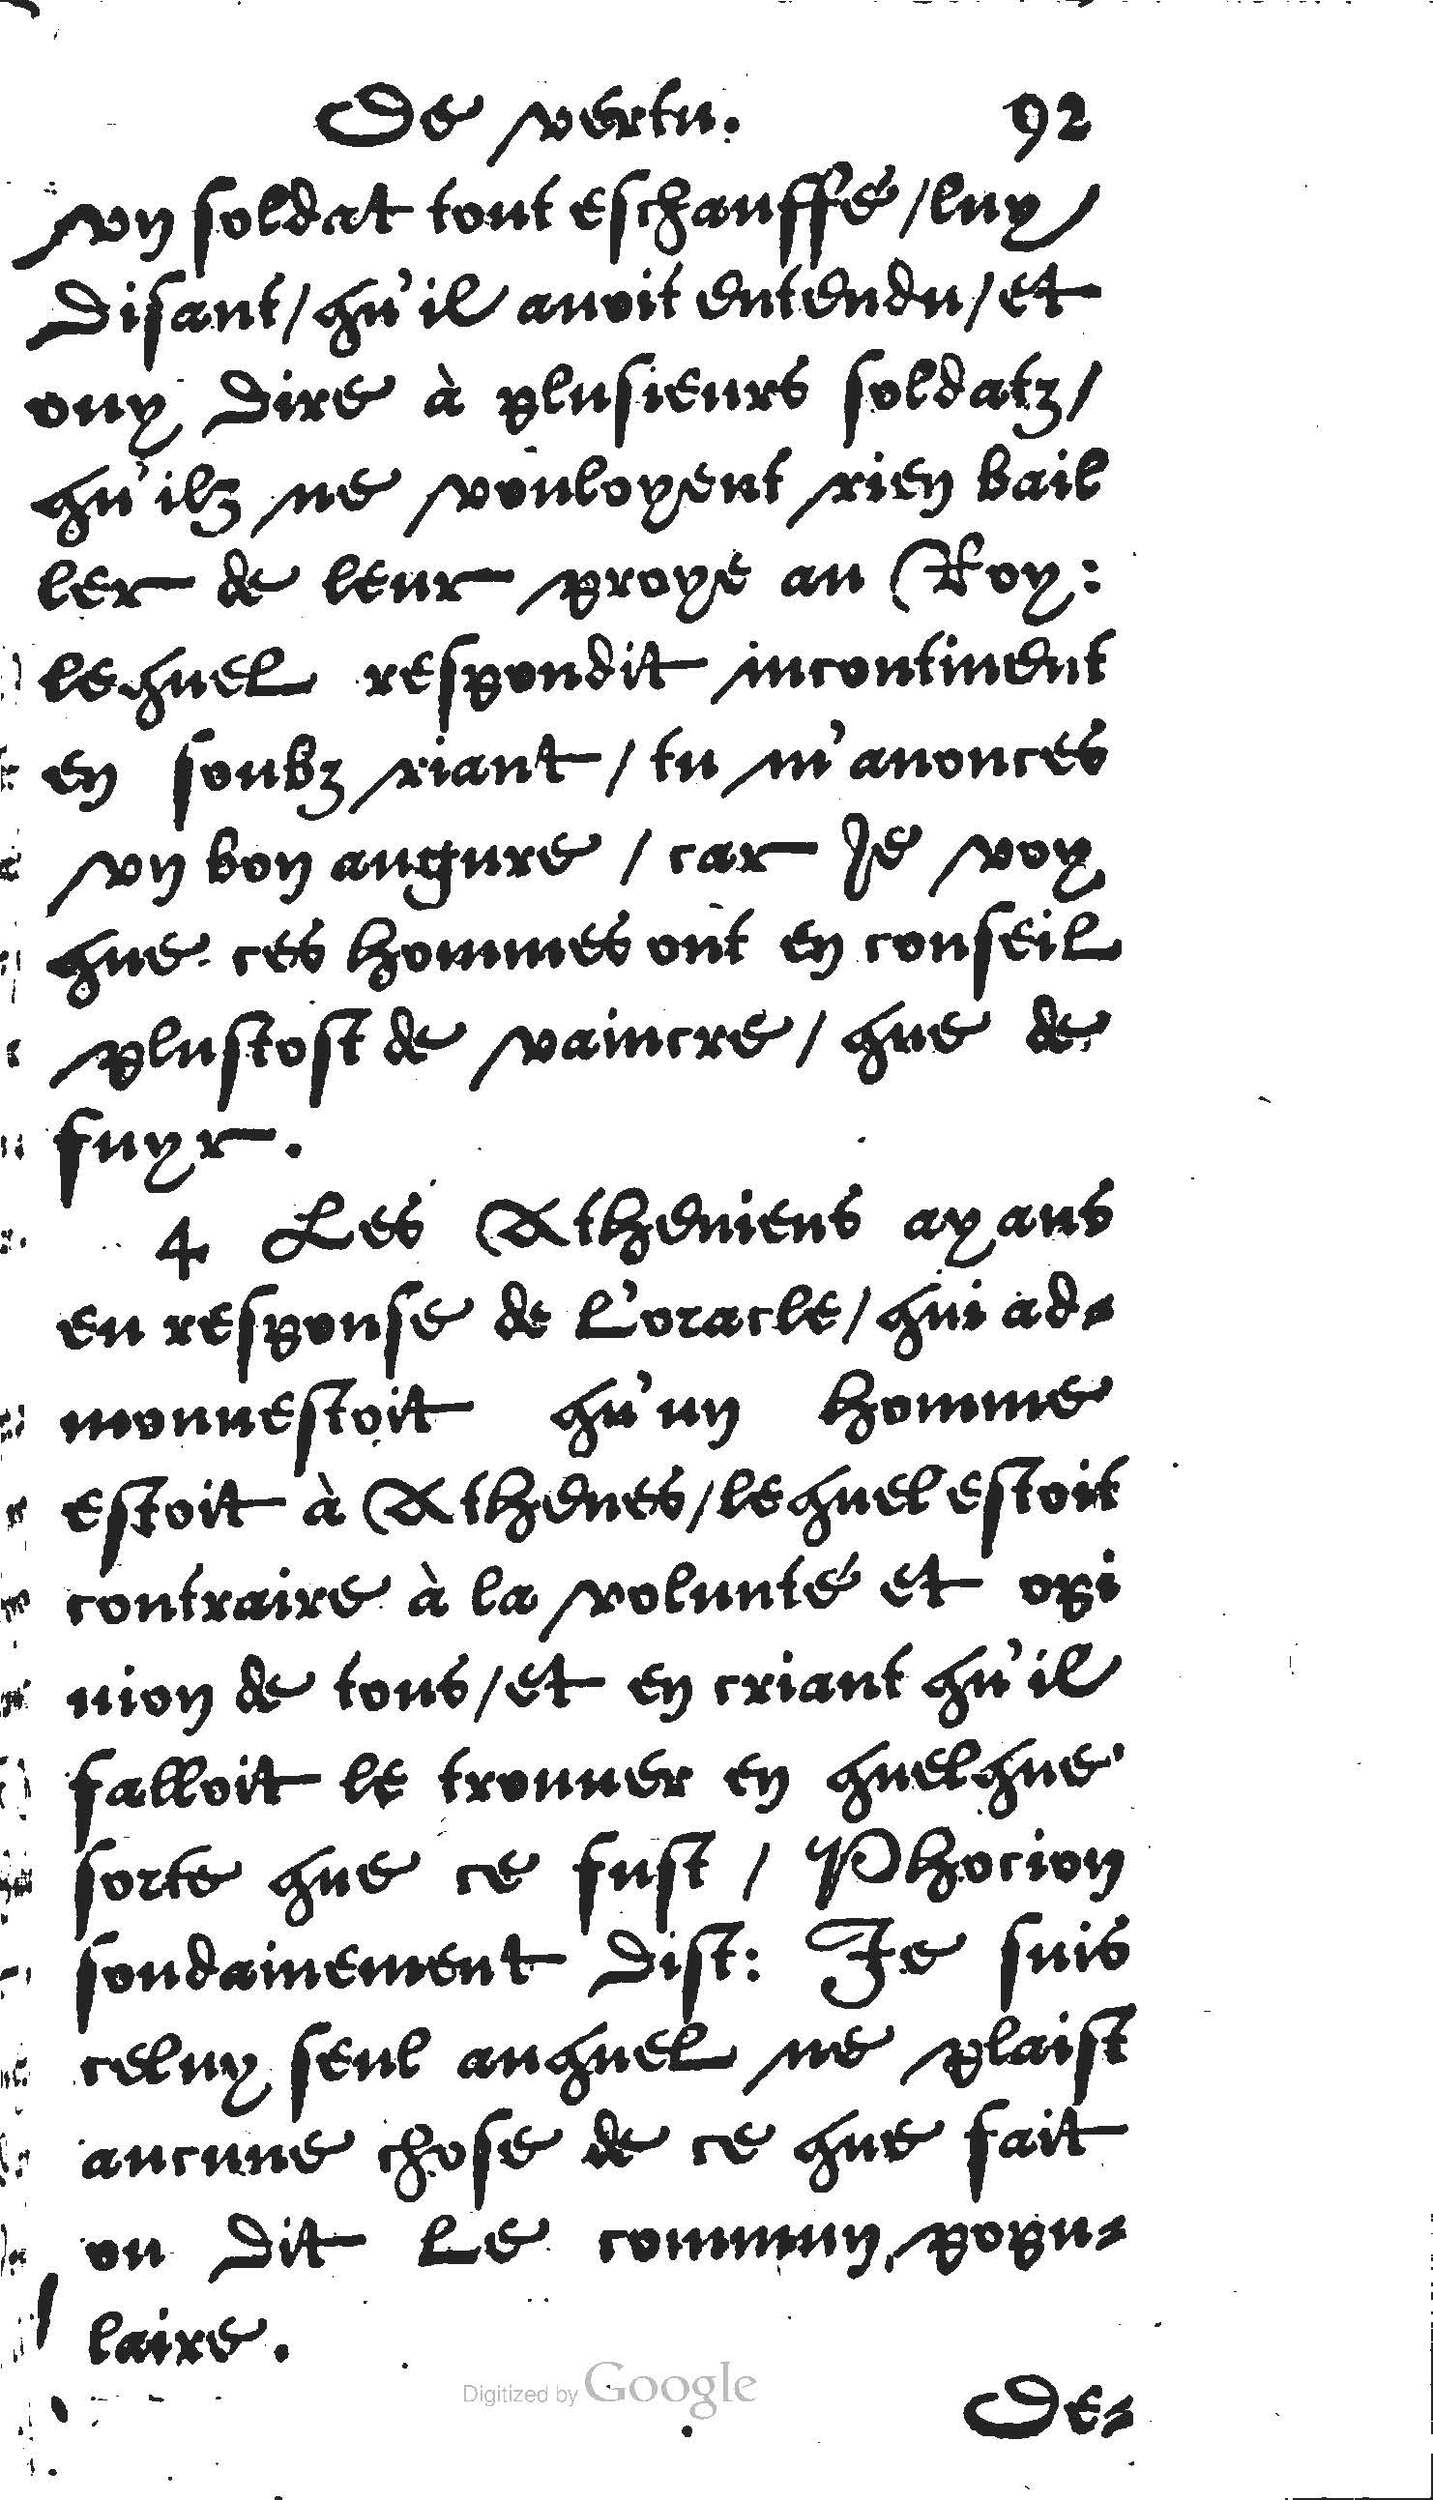 De vertu. 92
vn soldat tout eschauffé/luy
disant/qu'il auoit entendu/et
ouy dire à plusieurs soldatz/
qu'ilz ne vouloyent rien bail
ler de leur proye au Roy:
lequel respondit incontinent
en soubz riant/tu m'anonces
vn bon augure/car Je voy
que ces hommes ont en conseil
plustost de vaincre/que de
fuyr.
4 Les Atheniens ayans
eu response de l'oracle/qui ad-
monnestoit qu'un homme
estoit à Athenes/lequel estoit
contraire à la volunté et opi
nion de tous/et en criant qu'il
falloit le trouuer en quelque
sorte que ce fust/Phocion
soudainement dist: Je suis
celuy seul auquel ne plaist
aucune chose de ce que fait
ou dit le commun popu-
laire.
De-
Digitized by Google